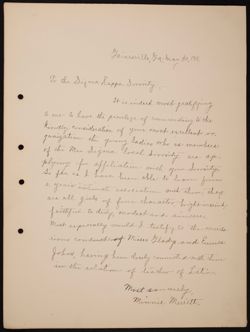 Gainesville, Ga. May 30, 191
To the Sigma Kappa Sorority,
It is indeed most gratifying
to me to have the privilege of commending to the
kindly consideration of your most excellent or-
ganization the young ladies who as members
of the Mu Sigma Local Sorority are ap-
plying for affiliation with your Sorority.
So far as I have been able to learn from
a years intimate association with them they
are all girls of fine character, high-minded,
faithful to duty, modest and sincere.
Most especially would I testify to the
conduct of Misses Gladys and Eunice
Johns, having been closely connected with them
in the relation of teacher of Latin.
Most sincerely,
Minnie Merritt.